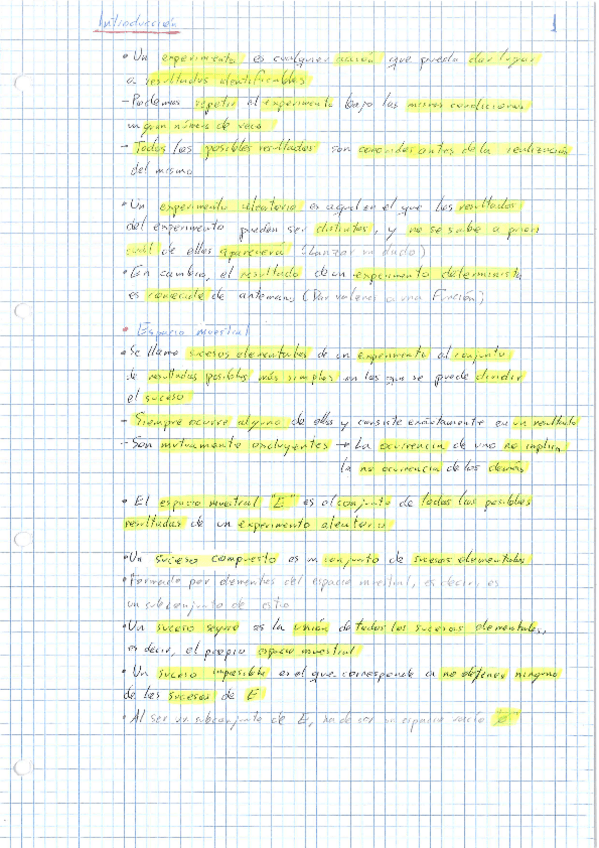 Introducción
1
• Un experimento es cualquier acción que pueda dar lugar
a resultados identificables
- Podemos repetir el experimento bajo las mismas condiciones
un gran número de veces
- Todos los posibles resultados son conocidos antes de la realización
del mismo
• Un experimento aleatorio es aquel en el que los resultados
del experimento pueden ser distintos, y no se sabe a priori
cuál de ellos aparecerá (Lanzar un dado)
• En cambio, el resultado de un experimento determinista
es conocido de antemano, (Dar valores a una Función)
• Espacio muestral
• Se llama sucesos elementales de un experimento al conjunto
de resultados posibles más simples en los que se puede dividir
el suceso
- Siempre ocurre alguno de ellos y consiste exactamente en un resultado
- Son mutuamente excluyentes → La ocurrencia de uno no implica
la no ocurrencia de los demás
• El espacio muestral "E" es el conjunto de todos los posibles
resultados de un experimento aleatorio
• Un suceso compuesto es un conjunto de sucesos elementales
• Formado por elementos del espacio muestral, es decir, es
un subconjunto de este
• Un suceso seguro es la unión de todos los sucesos elementales,
es decir, el propio espacio muestral
• Un suceso imposible es el que corresponde a no obtener ninguno
de los sucesos de E
• Al ser un subconjunto de E, ha de ser su espacio vacío "ø"